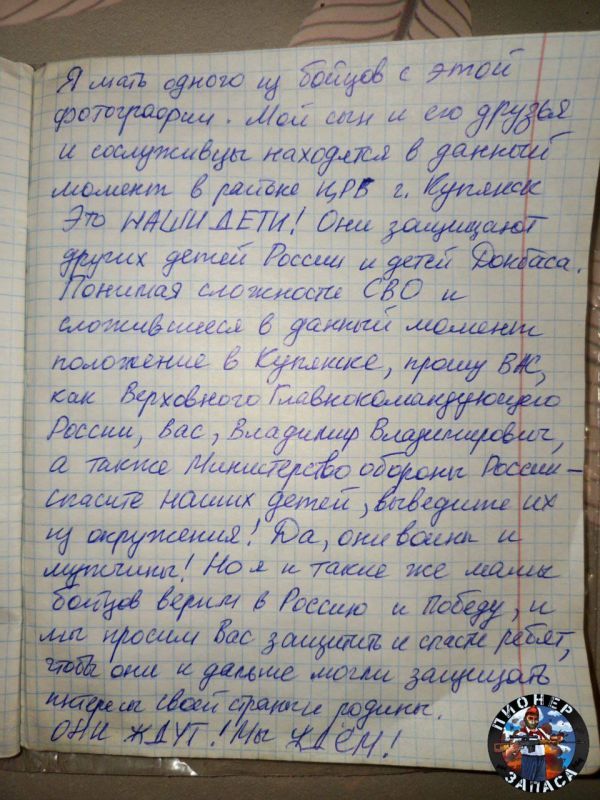 Я мать одного из бойцов с этой
фотографии. Мой сын и его друзья
и сослуживцы находятся в данный
момент в районе ЦРБ г. Купянск
Это НАШИ ДЕТИ! Они защищают
других детей России и детей Донбаса.
Понимая сложность СВО и
сложившиеся в данный момент
положение в Купянске, прошу ВАС,
как Верховного Главнокомандующего
России, Вас, Владимир Владимирович,
а также Министерство обороны России –
спасите наших детей, выведите их
из окружения! Да, они воины и
мужчины! Но я и такие же мамы
бойцов верим в Россию и Победу, и
мы просим Вас защитить и спасти ребят,
чтобы они и дальше могли защищать
интересы своей страны и родины.
ОНИ ЖДУТ! Мы ЖДЁМ!
ПИОНЕР
ЗАПАСА